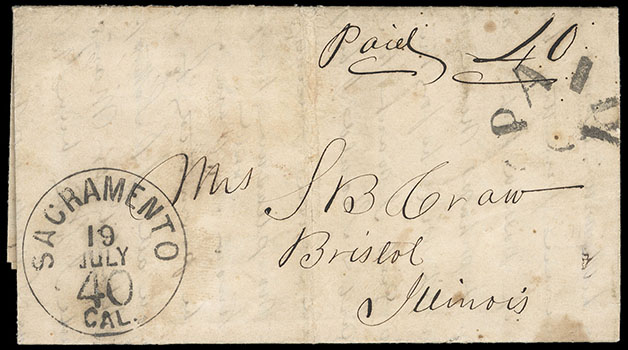 Paid 40
PAID
Mrs S B Craw
Bristol
Illinois
SACRAMENTO
19
JULY
40
CAL.